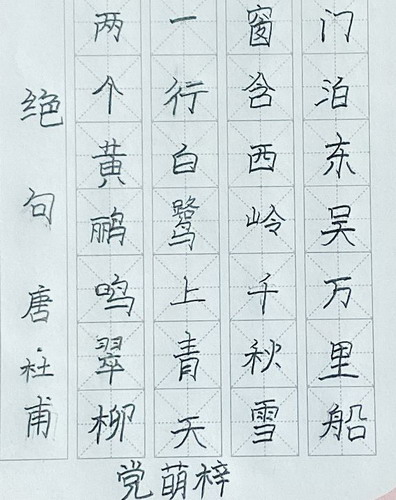 绝句 唐·杜甫
两个黄鹂鸣翠柳
一行白鹭上青天
窗含西岭千秋雪
门泊东吴万里船
党萌梓